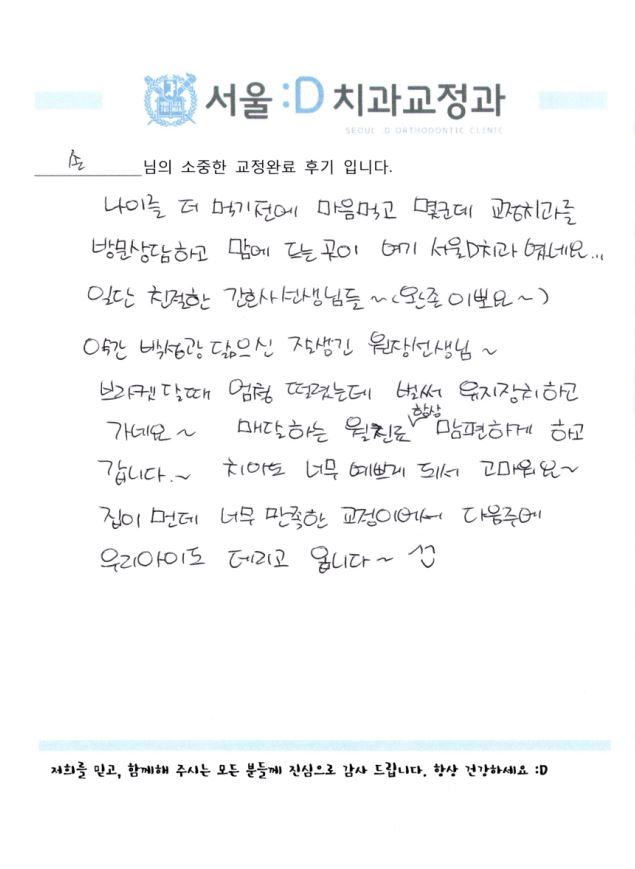 서울:D치과교정과
SEOUL :D ORTHODONTIC CLINIC
손 님의 소중한 교정완료 후기 입니다.
나이를 더 먹기전에 마음먹고 몇군데 교정치과를
방문상담하고 맘에 드는곳이 여기 서울D치과 였네요...
일단 친절한 간호사선생님들~(완존이뻐요~)
약간 백성광 닮으신 잘생긴 원장선생님~
브라켓달때 엄청 떨렸는데 벌써 유지장치하고
가네요~ 매달하는 월진료 항상 맘편하게 하고
갑니다.~ 치아도 너무 예쁘게 되서 고마워요~
집이 먼데 너무 만족한 교정이여서 다음주에
우리아이도 데리고 옵니다~
저희를 믿고, 함께해 주시는 모든 분들께 진심으로 감사 드립니다. 항상 건강하세요 :D